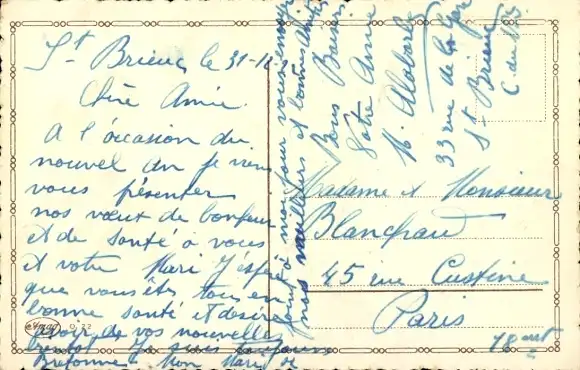 St Brieuc, le 31-12
Chère Amie.
A l'occasion du
nouvel an je vien
vous présenter
nos vœut de bonheur
et de santé à vous
et votre Mari j'espère
que vous êtes tous en
bonne santé et désire
avoir de vos nouvelles
bientot Je suis toujours
Bretonne Mon Mari se
joint à moi pour vous envoyer
nos meilleurs et bonne Année
Bons Baisers
Votre Amie
M.
33 rue de la Gare
St Brieuc
C. du N.
Madame et Monsieur
45 rue Custine
Paris
18